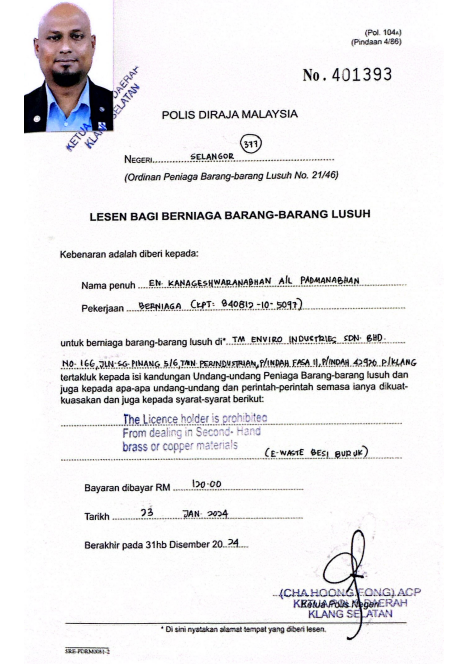 (Pol. 104A)
(Pindaan 4/86)
No. 401393
KETUA POLIS DAERAH
KLANG SELATAN
POLIS DIRAJA MALAYSIA
377
NEGERI SELANGOR
(Ordinan Peniaga Barang-barang Lusuh No. 21/46)
LESEN BAGI BERNIAGA BARANG-BARANG LUSUH
Kebenaran adalah diberi kepada:
Nama penuh EN. KANAGESHWARANABHAN A/L PADMANABHAN
Pekerjaan BERNIAGA (KPT: 840812-10-5097)
untuk berniaga barang-barang lusuh di* TM ENVIRO INDUSTRIES SDN. BHD.
NO. 166, JLN SG. PINANG 5/6, TMN PERINDUSTRIAN, P/INDAH FASA 11, P/INDAH 42920 P/KLANG
tertakluk kepada isi kandungan Undang-undang Peniaga Barang-barang lusuh dan
juga kepada apa-apa undang-undang dan perintah-perintah semasa ianya dikuat-
kuasakan dan juga kepada syarat-syarat berikut:
The Licence holder is prohibited
From dealing in Second- Hand
brass or copper materials
(E-WASTE BESI BURUK)
Bayaran dibayar RM 120.00
Tarikh 23 JAN. 2024
Berakhir pada 31hb Disember 20 24
(CHA HOONG FONG) ACP
KETUA POLIS DAERAH
Ketua Polis Negeri
KLANG SELATAN
* Di sini nyatakan alamat tempat yang diberi lesen.